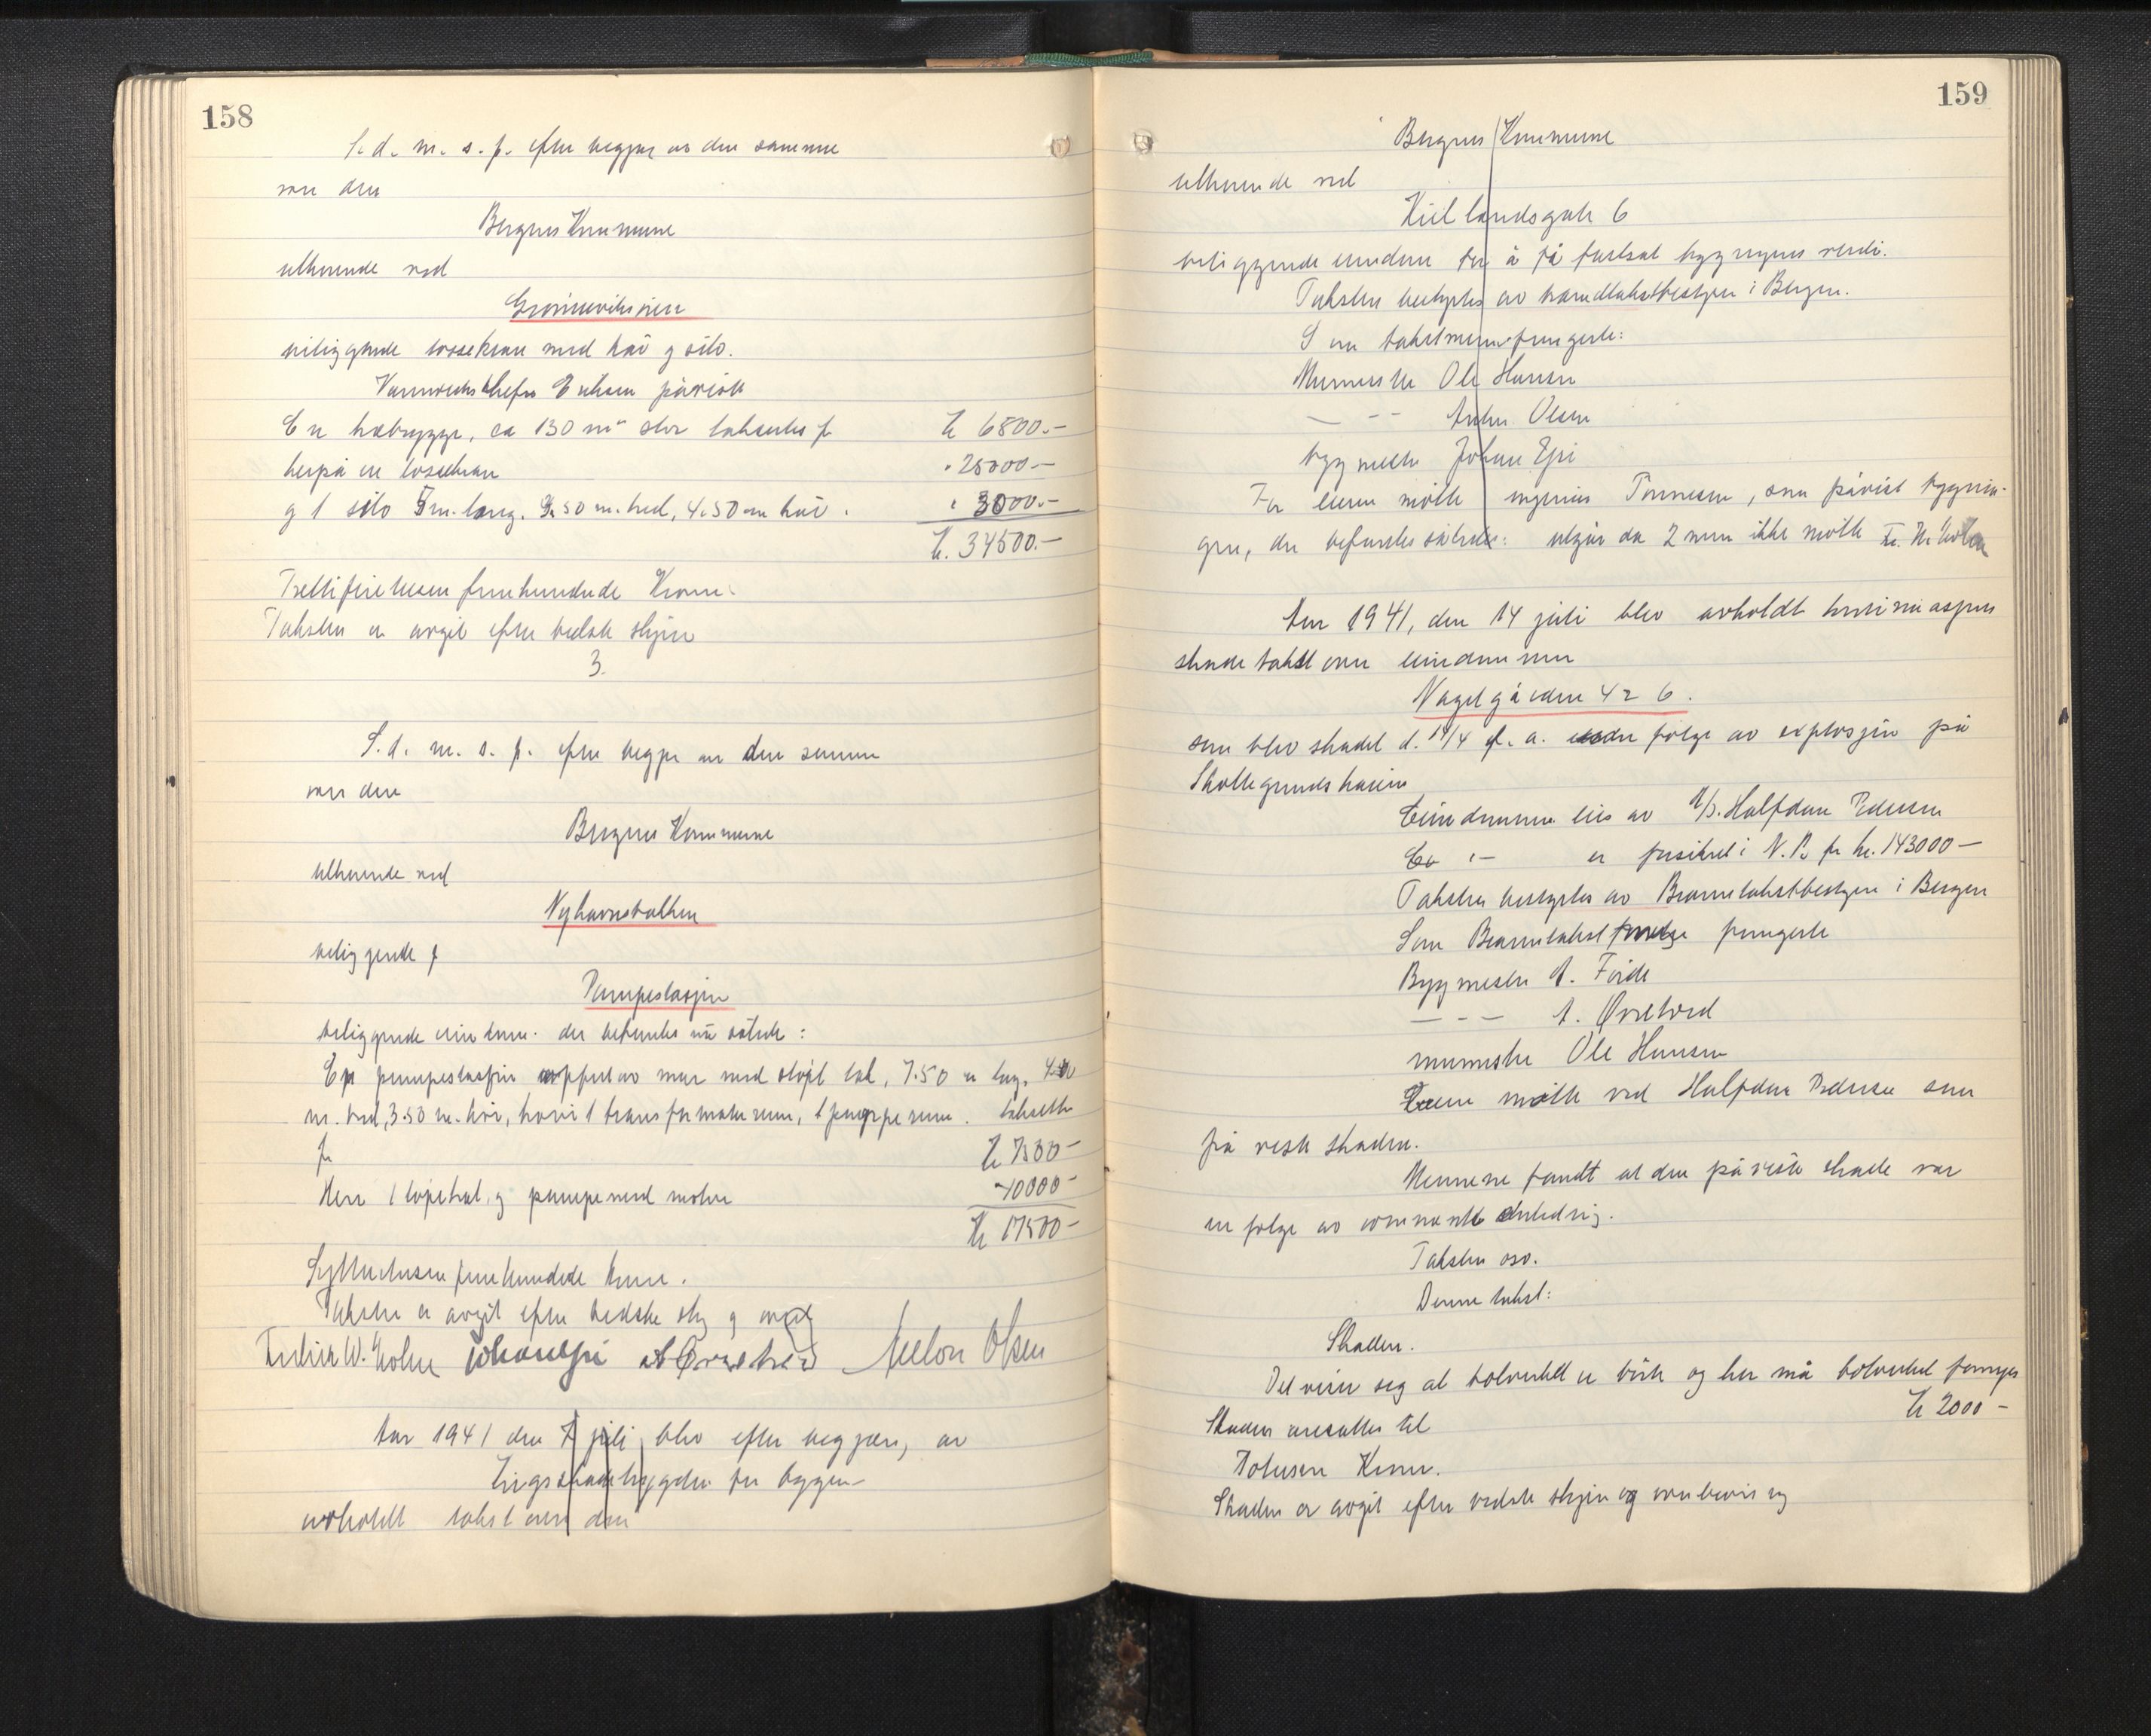 158
S. d. m. s. f. efter begjær av den samme
over den
Bergens Kommune
tilhørende ved
Grønneviksøren
beliggende lossekran med kai og silo.
Vannverkschefen Eriksen påviste
En trebrygge, ca 130 m² stor takseres for kr 6500.-
herpå en lossekran " 25000.-
og 1 silo 5 m. lang. 3.50 m. bred, 4.50 m høi. " 3000.-
kr. 34500.-
Trettifiretusen femhundrede Kroner.
Taksten er avgit efter bedste skjøn
3.
S. d. m. s. f. efter begjær av den samme
over den
Bergens Kommune
tilhørende ved
Nyhavnsbakken
beliggende
Pumpestasjon
beliggende eiendom. der befantes nu såtede:
En pumpestasjon opført av mur med støpt tak, 7.50 m lang. 4.00
m. bred, 3.50 m. høi, hvori 1 transformatorrum, 1 pumperum. taksert
for kr 7500-
Heri 1 løpekat og pumpe med motor 10000-
kr 17500-
Syttentusen femhundrede kroner.
Taksten er avgit efter bedste skjøn og
Fredrik W. Holm Johan Epi A Øvretveit Anton Olsen
Aar 1941 den 7 juli blev efter begjær av
Krigsskadetrygden for bygen
avholdt takst over den
159
Bergens Kommune
tilhørende ved
Kiellandsgate 6
beliggende eiendom for å få fastsat bygningens verdi.
Taksten bestyrtes av branntakstbestyrer i Bergen.
Som takstmenn fungerte:
Murmester Ole Hansen
— -- Anton Olsen
bygmester Johan Epi
For eieren møtte ingeniør Tønnesen, som påviste bygnin-
gen, der befantes således: utgår da 2 menn ikke møtte Fr. W. Holm
Aar 1941, den 14 juli blev avholdt
skadetakst over eiendommen
Nagelgården 4 & 6.
som blev skadet d. 14/4 d. a. under følge av explosjon på
Skoltegrundskaien
Eiendommen eies av A/S. Halfdan Pedersen
Do -"- er forsikret i N. B. for kr. 143000-
Taksten bestyrtes av Branntakstbestyrer i Bergen
Som Branntakstmenn fungerte
Bygmester A. Førde
— - - A. Øvretveit
murmester Ole Hansen
Eieren møtte ved Halfdan Pedersen som
påviste skaden.
Mennene fandt at den påviste skade var
en følge av ovennevnte anledning.
Taksten osv.
Denne takst:
Skaden.
Det viser seg at bolverket er og her må bolverket fornyes
Skaden ansattes til kr 2000-
Totusen Kroner.
Skaden er avgit efter bedste skjøn og overbevisning